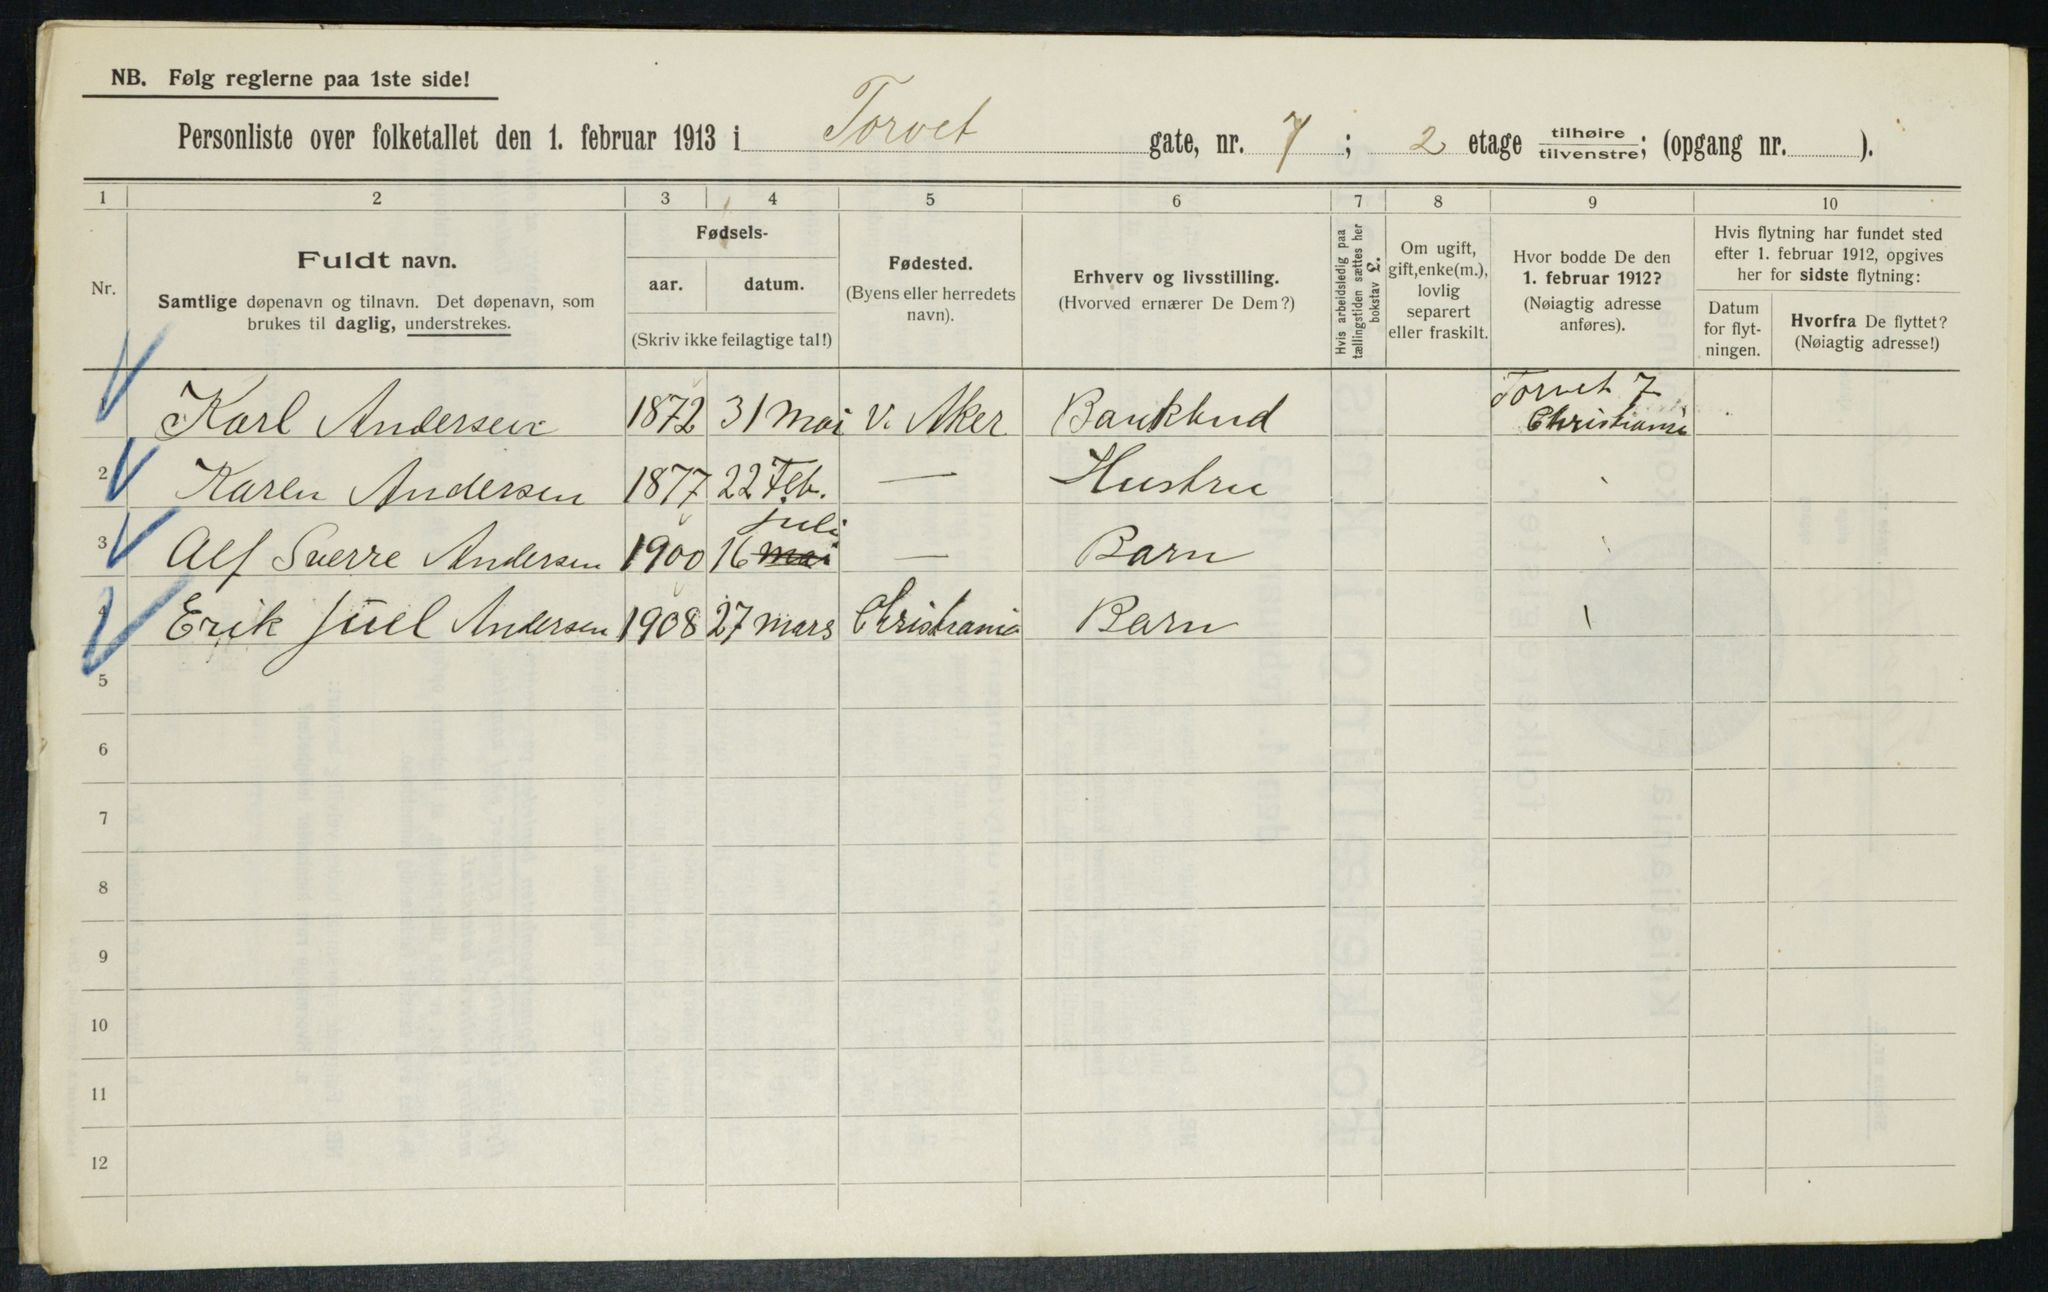 NB. Følg reglerne paa 1ste side!
Personliste over folketallet den 1. februar 1913 i Torvet gate, nr. 7 ; 2 etage tilhøire/tilvenstre; (opgang nr. ).
1 2 3 4 5 6 7 8 9 10
Nr.
Fuldt navn.
Samtlige døpenavn og tilnavn. Det døpenavn, som
brukes til daglig, understrekes.
Fødsels-
aar. datum.
(Skriv ikke feilagtige tal!)
Fødested.
(Byens eller herredets
navn).
Erhverv og livsstilling.
(Hvorved ernærer De Dem?)
Hvis arbeidsledig paa
tællingstiden sættes her
bokstav L.
Om ugift,
gift, enke(m.),
lovlig
separert
eller fraskilt.
Hvor bodde De den
1. februar 1912?
(Nøiagtig adresse
anføres).
Hvis flytning har fundet sted
efter 1. februar 1912, opgives
her for sidste flytning:
Datum
for flyt-
ningen.
Hvorfra De flyttet?
(Nøiagtig adresse!)
Karl Andersen 1872 31 mai V. Aker Bankbud Torvet 7 Christiania
2 Karen Andersen 1877 22 Feb. — Hustru
3 Alf Sverre Andersen 1900 16 mai juli — Barn
4 Erik Juel Andersen 1908 27 mars Christiania Barn
5
6
7
8
9
10
11
12